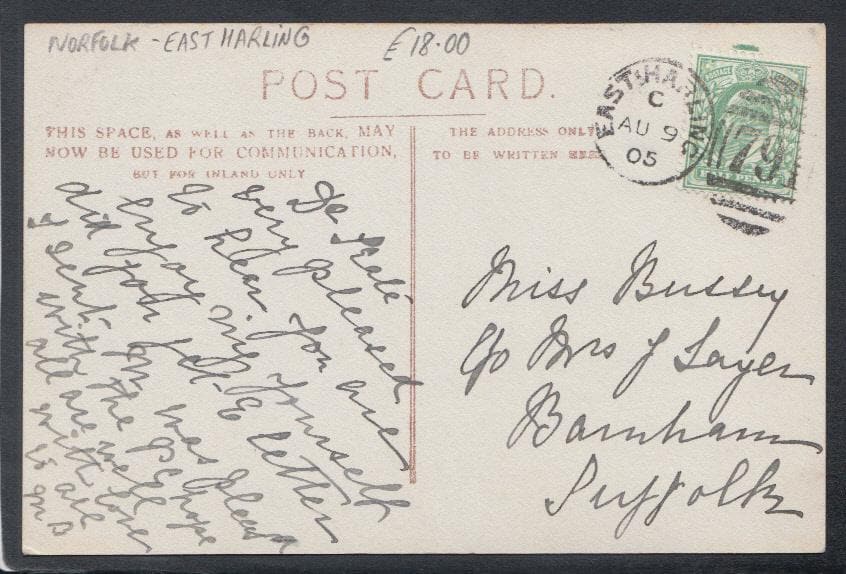 NORFOLK - EAST HARLING £18.00
POST CARD.
THIS SPACE, AS WELL AS THE BACK, MAY
NOW BE USED FOR COMMUNICATION,
BUT FOR INLAND ONLY
THE ADDRESS ONLY
TO BE WRITTEN HERE
EAST HARLING
C
AU 9
05
POSTAGE
79
De Kate
very pleased
to hear you are
enjoy yourself
did you get E letter
I sent. was pleased
with the PC hope
all are well
with love
to all
Miss Bussey
c/o Mrs J Sayer
Barnham
Suffolk